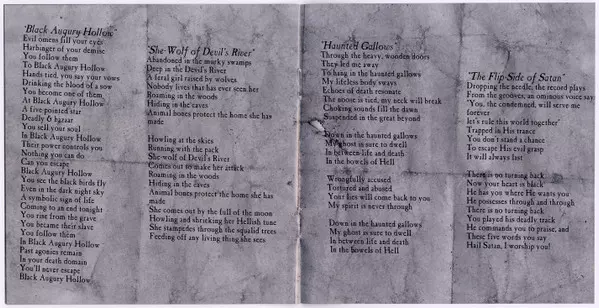 "Black Augury Hollow"
Evil omens fill your eyes
Harbinger of your demise
You follow them
To Black Augury Hollow
Hands tied, you say your vows
Drinking the blood of a sow
You become one of them
At Black Augury Hollow
A five pointed star
Deadly & bazaar
You sell your soul
In Black Augury Hollow
Their power controls you
Nothing you can do
Can you escape
Black Augury Hollow
You see the black birds fly
Even in the dark night sky
A symbolic sign of life
Coming to an end tonight
You rise from the grave
You became their slave
You follow them
In Black Augury Hollow
Past agonies remain
In your death domain
You'll never escape
Black Augury Hollow
"She-Wolf of Devil's River"
Abandoned in the murky swamps
Deep in the Devil's River
A feral girl raised by wolves
Nobody lives that has ever seen her
Roaming in the woods
Hiding in the caves
Animal bones protect the home she has
made
Howling at the skies
Running with the pack
She-wolf of Devil's River
Comes out to make her attack
Roaming in the woods
Hiding in the caves
Animal bones protect the home she has
made
She comes out by the full of the moon
Howling and shrieking her Hellish tune
She stampedes through the squalid trees
Feeding off any living thing she sees
"Haunted Gallows"
Through the heavy, wooden doors
They led me away
To hang in the haunted gallows
My lifeless body sways
Echoes of death resonate
The noose is tied, my neck will break
Choking sounds fill the dawn
Suspended in the great beyond
Down in the haunted gallows
My ghost is sure to dwell
In between life and death
In the bowels of Hell
Wrongfully accused
Tortured and abused
Your lies will come back to you
My spirit is never through
Down in the haunted gallows
My ghost is sure to dwell
In between life and death
In the bowels of Hell
"The Flip Side of Satan"
Dropping the needle, the record plays
From the grooves, an ominous voice say
"You, the condemned, will serve me
forever
let's rule this world together"
Trapped in His trance
You don't stand a chance
To escape His evil grasp
It will always last
There is no turning back
Now your heart is black
He has you where He wants you
He possesses through and through
There is no turning back
You played his deadly track
He commands you to praise, and
These five words you say
Hail Satan, I worship you!